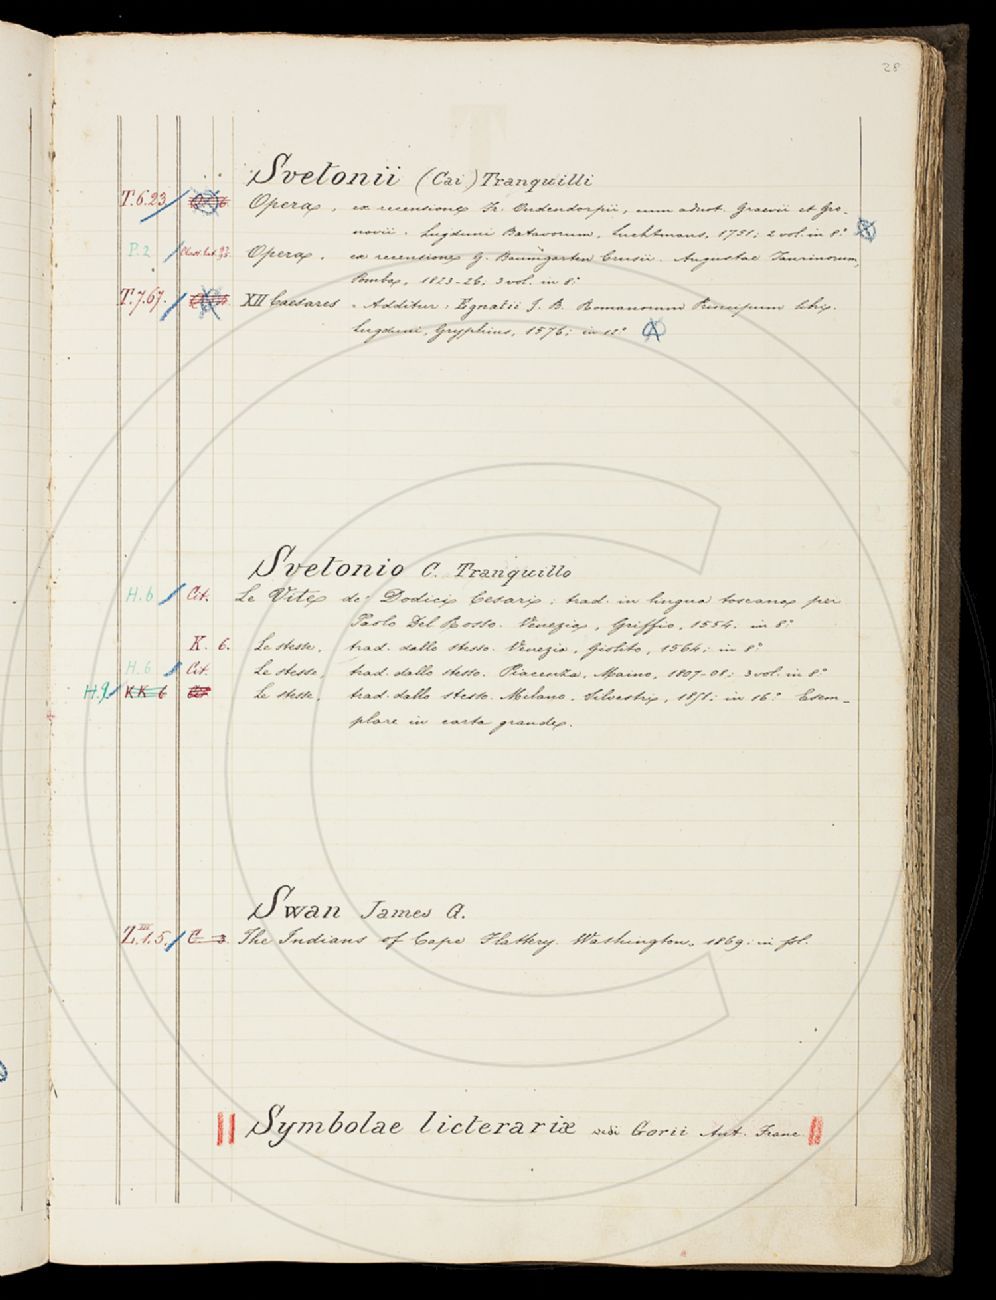 28
Svetonii (Cai) Tranquilli
T.6.23. Opera, ex recensione Fr. Oudendorpii, cum adnot. Graevii et Gro-
novii. Lugduni Batavorum, Luchtmans, 1751; 2 vol. in 8.°
P.2 Class. lat. Opera, ex recensione G. Baumgarten Crusii. Augustae Taurinorum,
Pomba, 1823-26. 3 vol. in 8.°
T.7.67. XII Caesares. Additur: Egnatii J. B. Romanorum Principum libri.
Lugduni, Gryphius, 1576; in 12.°
Svetonio C. Tranquillo
H.6 Cit. Le Vite de' Dodici Cesari; trad. in lingua toscana per
Paolo Del Rosso. Venezia, Griffio, 1554. in 8.°
K. 6. Le stesse, trad. dallo stesso. Venezia, Giolito, 1564; in 8.°
H.6 Cit. Le stesse, trad. dallo stesso. Piacenza, Maino, 1807-08; 3 vol. in 8.°
H.9 KK 6 Le stesse, trad. dallo stesso. Milano, Silvestri, in 16.° Esem-
plare in carta grande.
Swan James G.
Z.III.1.5. C 3 The Indians of Cape Flattery. Washington, 1869; in fol.
Symbolae licterariæ vedi Gorii Ant. Franc.